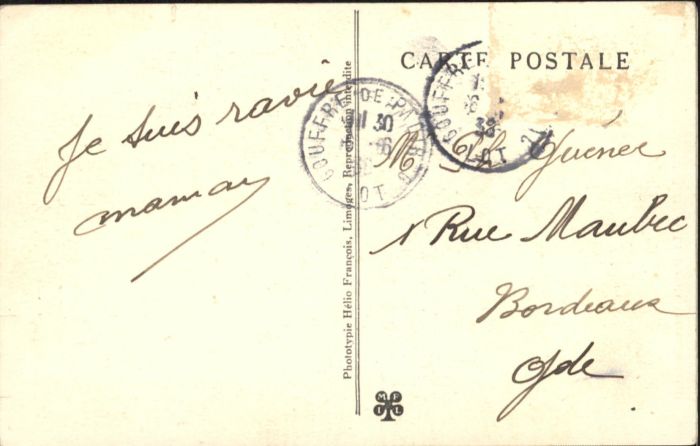 Je suis ravie
maman
CARTE POSTALE
GOUFFRE-DE-PA
30
LOT
GOUFFRE
LOT
Phototypie Hélio François, Limoges, Reproduction interdite
M
1 Rue Maubec
Bordeaux
Gde
M F
I L